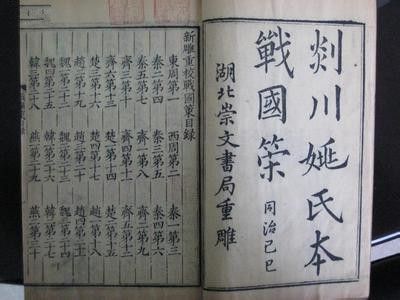 剡川姚氏本
戰國策
同治己巳
湖北崇文書局重雕
新雕重校戰國策目録
東周第一 西周第二 秦一第三
秦二第四 秦三第五 秦四第六
秦五第七 齊一第八 齊二第九
齊三第十 齊四第十一 齊五第十二
齊六第十三 楚一第十四 楚二第十五
楚三第十六 楚四第十七 趙一第十八
趙二第十九 趙三第二十 趙四第二十一
魏一第二十二 魏二第二十三 魏三第二十四
魏四第二十五 韓一第二十六 韓二第二十七
韓三第二十八 燕一第二十九 燕二第三十